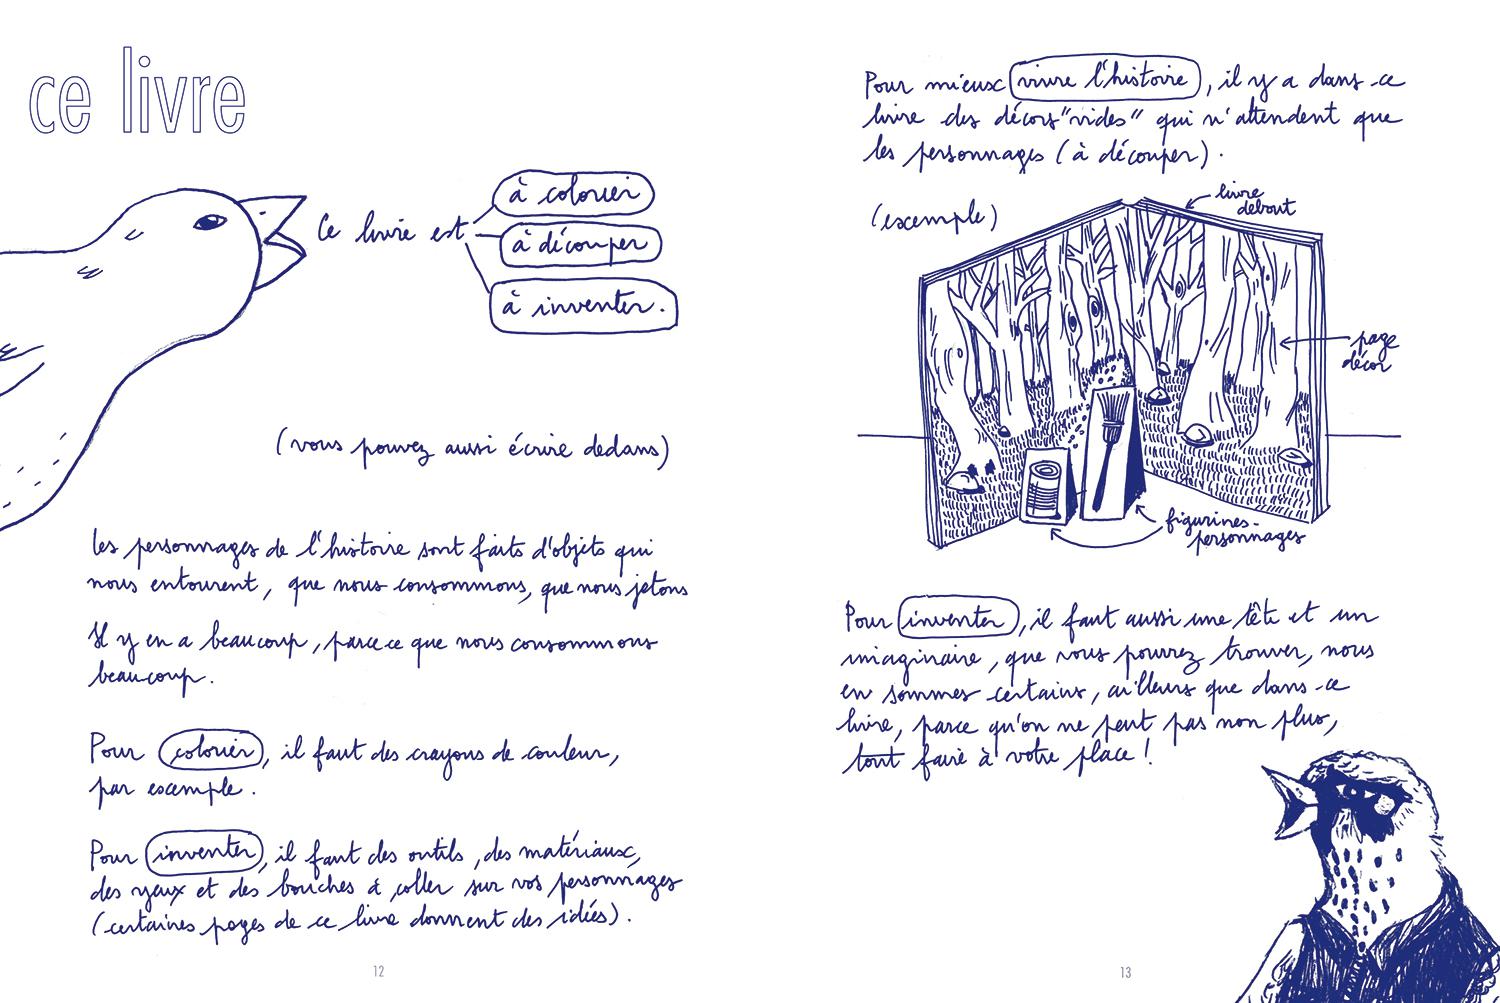 ce livre
Ce livre est
à colorier
à découper
à inventer.
(vous pouvez aussi écrire dedans)
les personnages de l'histoire sont faits d'objets qui
nous entourent, que nous consommons, que nous jetons
Il y en a beaucoup, parce que nous consommons
beaucoup.
Pour colorier, il faut des crayons de couleur,
par exemple.
Pour inventer, il faut des outils, des matériaux,
des yeux et des bouches à coller sur vos personnages
(certaines pages de ce livre donnent des idées).
12
Pour mieux vivre l'histoire, il y a dans ce
livre des décors "vides" qui n'attendent que
les personnages (à découper).
(exemple)
livre
debout
page
décor
figurines-
personnages
Pour inventer, il faut aussi une tête et un
imaginaire, que vous pouvez trouver, nous
en sommes certains, ailleurs que dans ce
livre, parce qu'on ne peut pas non plus,
tout faire à votre place !
13